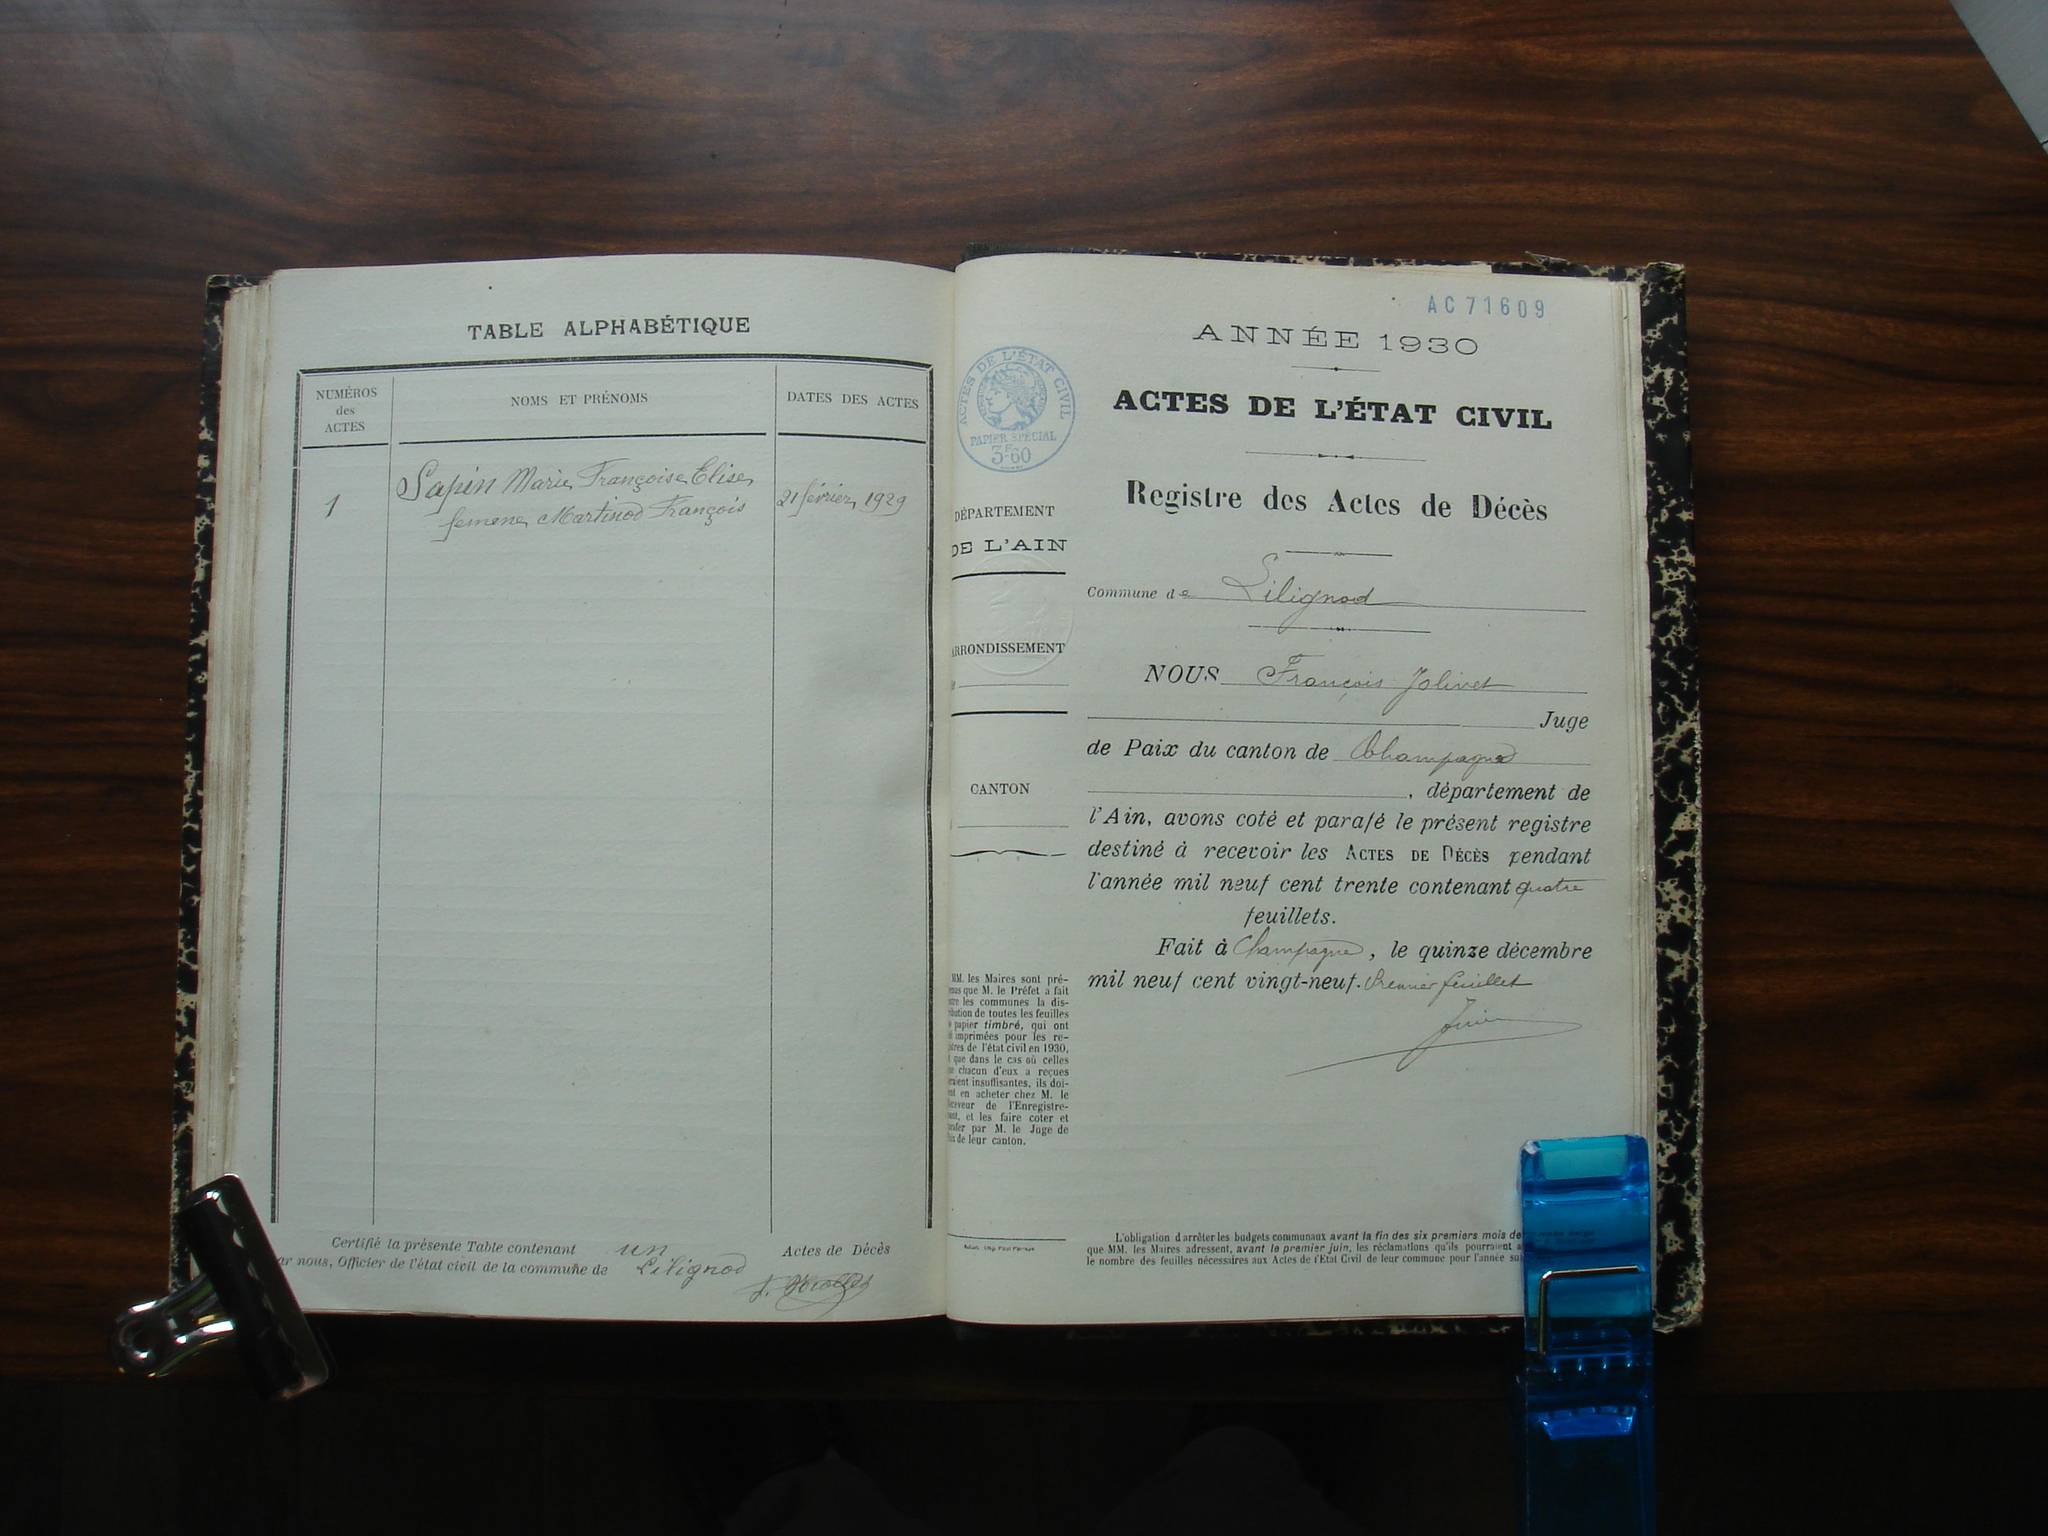 TABLE ALPHABÉTIQUE
NUMÉROS
des
ACTES
NOMS ET PRÉNOMS
DATES DES ACTES
1
Sapin Marie Françoise Elise
femme Martinod François
21 février 1929
Certifié la présente Table contenant un Actes de Décès
ar nous, Officier de l'état civil de la commune de Lilignod
AC 71609
ANNÉE 1930
ACTES DE L'ÉTAT CIVIL
PAPIER SPÉCIAL
3F60
ACTES DE L'ÉTAT CIVIL
Registre des Actes de Décès
DÉPARTEMENT
DE L'AIN
Commune de Lilignod
ARRONDISSEMENT
NOUS François Jolivet
Juge
de Paix du canton de Champagne
CANTON
, département de
l'Ain, avons coté et parafé le présent registre
destiné à recevoir les ACTES DE DÉCÈS pendant
l'année mil neuf cent trente contenant quatre
feuillets.
Fait à Champagne, le quinze décembre
mil neuf cent vingt-neuf. Premier feuillet
MM. les Maires sont pré-
enus que M. le Préfet a fait
tre les communes la dis-
ibution de toutes les feuilles
papier timbré, qui ont
imprimées pour les re-
tres de l'état civil en 1930,
que dans le cas où celles
e chacun d'eux a reçues
raient insuffisantes, ils doi-
nt en acheter chez M. le
eceveur de l'Enregistre-
ent, et les faire coter et
arafer par M. le Juge de
aix de leur canton.
L'obligation d'arrêter les budgets communaux avant la fin des six premiers mois de
que MM. les Maires adressent, avant le premier juin, les réclamations qu'ils pourraient a
le nombre des feuilles nécessaires aux Actes de l'Etat Civil de leur commune pour l'année su